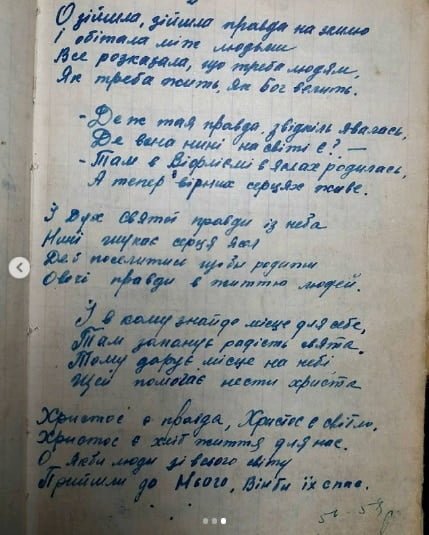 О зійшла, зійшла правда на землю
І обітала між людьми
Все розказала, що треба людям,
Як треба жить, як Бог велить.
- Де ж тая правда, звідкіль явилась,
Де вона нині на світі є? —
- Там в Вифлиємі в яслах родилась,
А тепер в вірних серцях живе.
І Дух святої правди із неба
Нині шукає серця
Де б поселитись щоби родити
Овочі правди в життю людей.
І в кому знайде місце для себе,
Там запанує радість свята.
Тому дарує місце на небі
Щей помогає нести христа
Христос є правда, Христос є світло,
Христос є хліб життя для нас.
О якби люди зі всього світу
Прийшли до Нього, Він би їх спас.